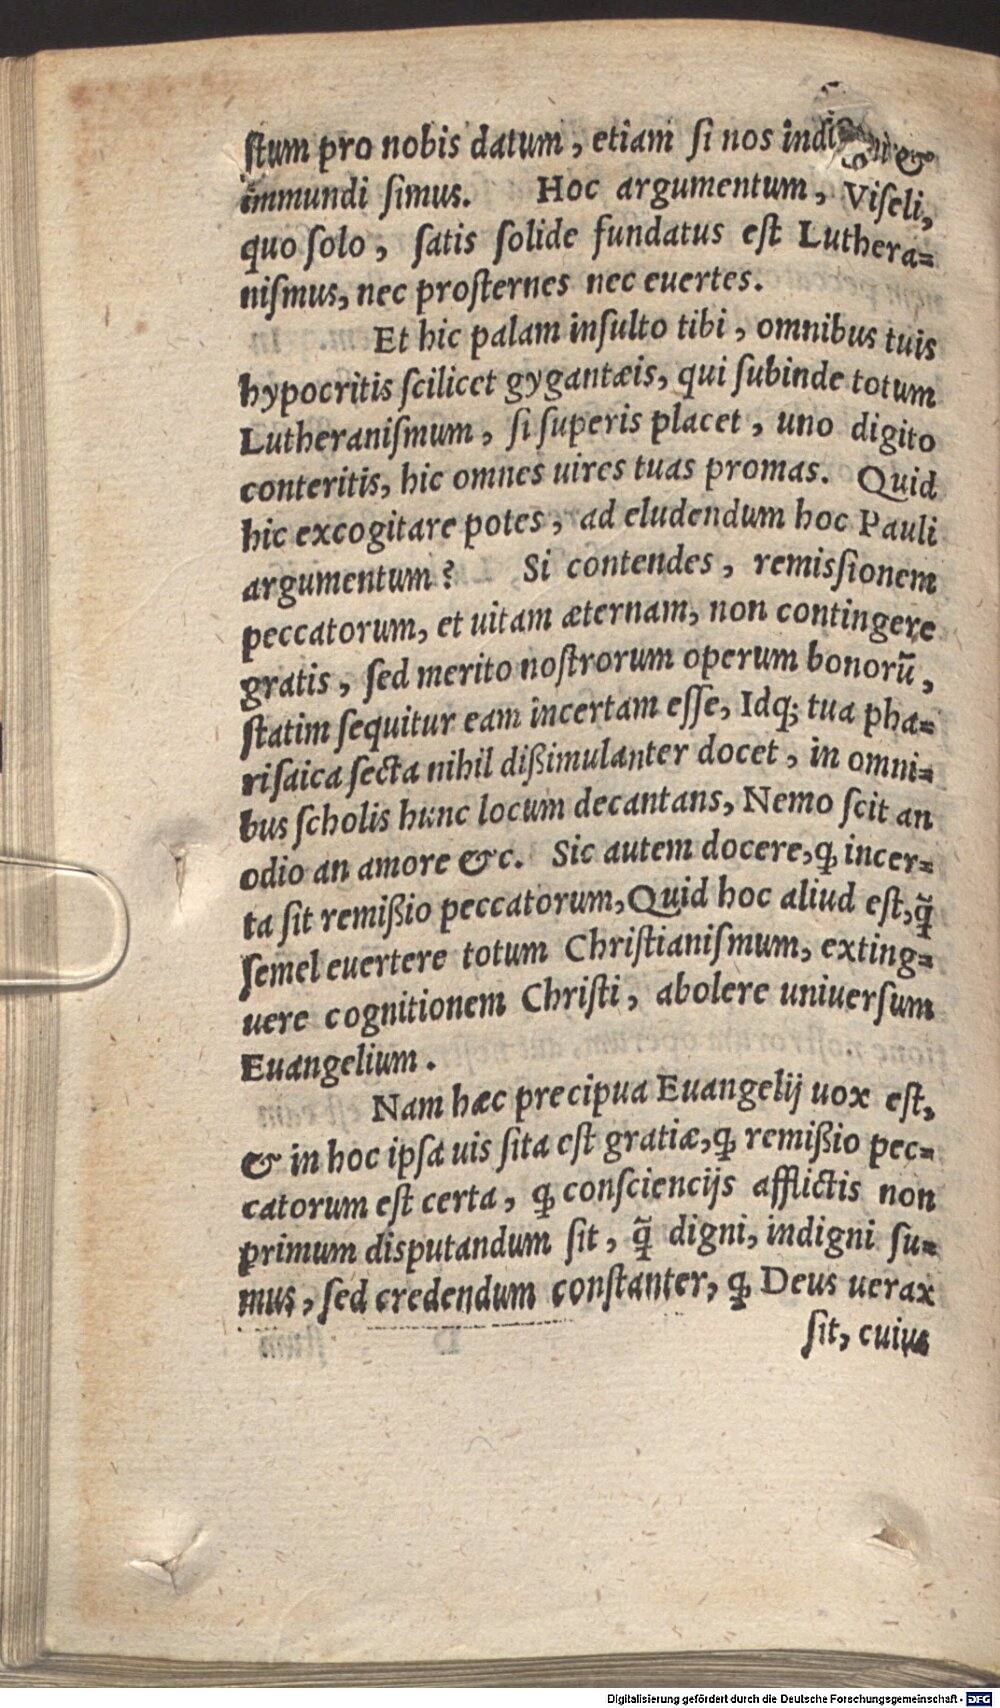 ſtum pro nobis datum, etiam ſi nos indigni &
immundi ſimus. Hoc argumentum, Viſeli,
quo ſolo, ſatis ſolide fundatus eſt Luthera=
niſmus, nec proſternes nec euertes.
Et hic palam inſulto tibi, omnibus tuis
hypocritis ſcilicet gygantæis, qui ſubinde totum
Lutheraniſmum, ſi ſuperis placet, uno digito
conteritis, hic omnes uires tuas promas. Quid
hic excogitare potes, ad eludendum hoc Pauli
argumentum? Si contendes, remisſionem
peccatorum, et uitam æternam, non contingere
gratis, ſed merito noſtrorum operum bonorū,
ſtatim ſequitur eam incertam eſſe, Idq; tua pha=
riſaica ſecta nihil dißimulanter docet, in omni=
bus ſcholis hunc locum decantans, Nemo ſcit an
odio an amore &c. Sic autem docere, ꝙ incer=
ta ſit remißio peccatorum, Quid hoc aliud eſt, ꝙ̃
ſemel euertere totum Chriſtianiſmum, exting=
uere cognitionem Chriſti, abolere uniuerſum
Euangelium.
Nam hæc precipua Euangelij uox eſt,
& in hoc ipſa uis ſita eſt gratiæ, ꝙ remißio pec=
catorum eſt certa, ꝙ conſcienciis afflictis non
primum diſputandum ſit, ꝙ̃ digni, indigni ſu=
mus, ſed credendum conſtanter, ꝙ Deus uerax
ſit, cuius
Digitalisierung gefördert durch die Deutsche Forschungsgemeinschaft - DFG